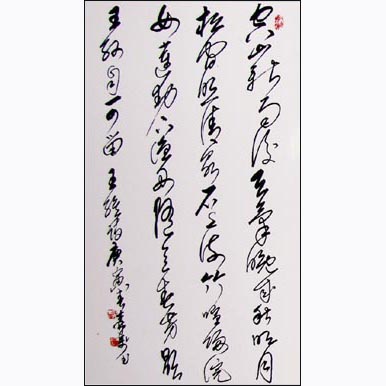 空山新雨後天氣晚來秋明月
松間照清泉石上流竹喧歸浣
女蓮動下漁舟隨意春芳歇
王孫自可留 王維詩庚寅春